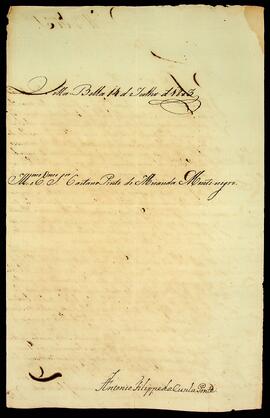 Villa Bella 14 de Julho de 1803
Illmo. e Exmo. Snr. Caetano Pinto de Miranda Montenegro.
Antonio Filippe da Cunha Ponte